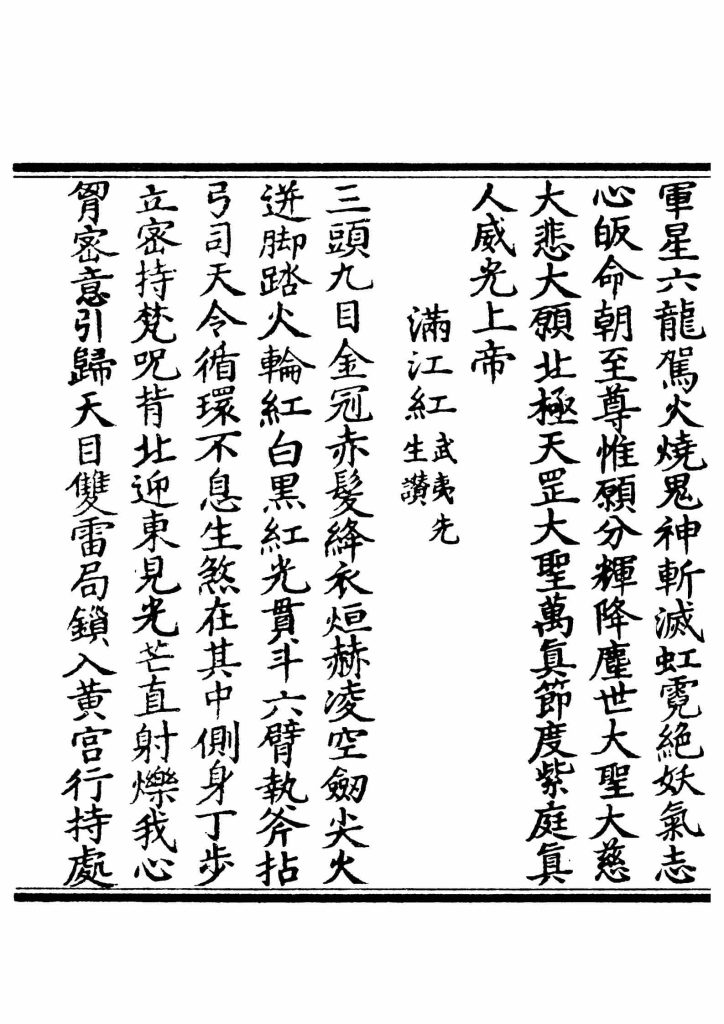 軍星六龍駕火燒鬼神斬滅虹霓絶妖氣志
心皈命朝至尊惟願分輝降塵世大聖大慈
大悲大願北極天罡大聖萬眞節度紫庭眞
人威光上帝
滿江紅武夷先生讚
三頭九目金冠赤髮絳衣烜赫凌空劒尖火
迸脚踏火輪紅白黑紅光貫斗六臂執斧拈
弓司天令循環不息生煞在其中側身丁步
立密持梵呪背北迎東見光芒直射爍我心
胷密意引歸天目雙雷局鎖入黄宫行持處